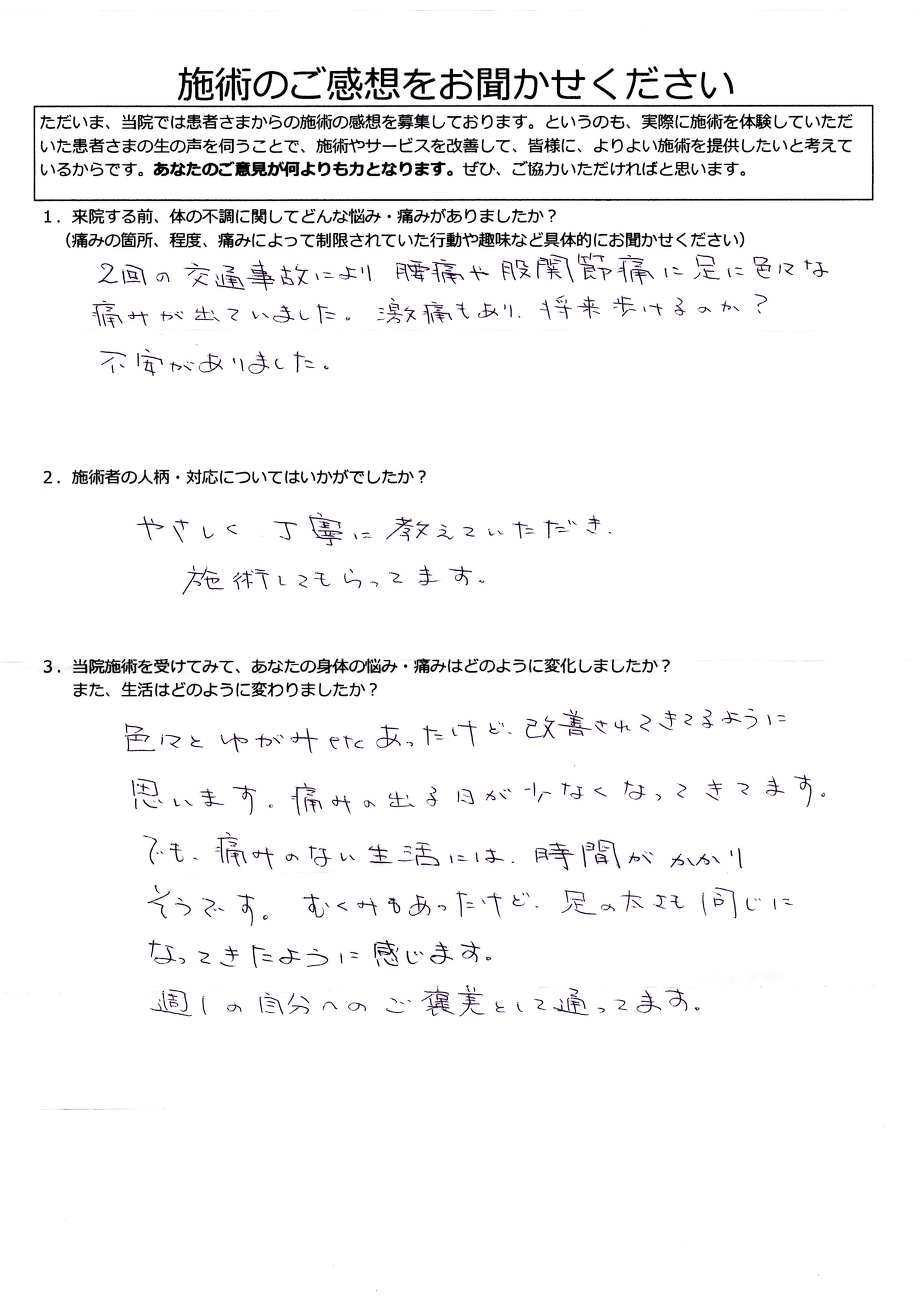 施術のご感想をお聞かせください
ただいま、当院では患者さまからの施術の感想を募集しております。というのも、実際に施術を体験していただ
いた患者さまの生の声を伺うことで、施術やサービスを改善して、皆様に、よりよい施術を提供したいと考えて
いるからです。あなたのご意見が何よりも力となります。ぜひ、ご協力いただければと思います。
１．来院する前、体の不調に関してどんな悩み・痛みがありましたか？
（痛みの箇所、程度、痛みによって制限されていた行動や趣味など具体的にお聞かせください）
2回の交通事故により 腰痛や股関節痛に足に色々な
痛みが出ていました。激痛もあり、将来歩けるのか？
不安がありました。
２．施術者の人柄・対応についてはいかがでしたか？
やさしく 丁寧に教えていただき、
施術してもらってます。
３．当院施術を受けてみて、あなたの身体の悩み・痛みはどのように変化しましたか？
また、生活はどのように変わりましたか？
色々とゆがみetcあったけど、改善されてきてるように
思います。痛みの出る日が少なくなってきてます。
でも、痛みのない生活には、時間がかかり
そうです。むくみもあったけど、足の太さも同じに
なってきたように感じます。
週1の自分へのご褒美として通ってます。